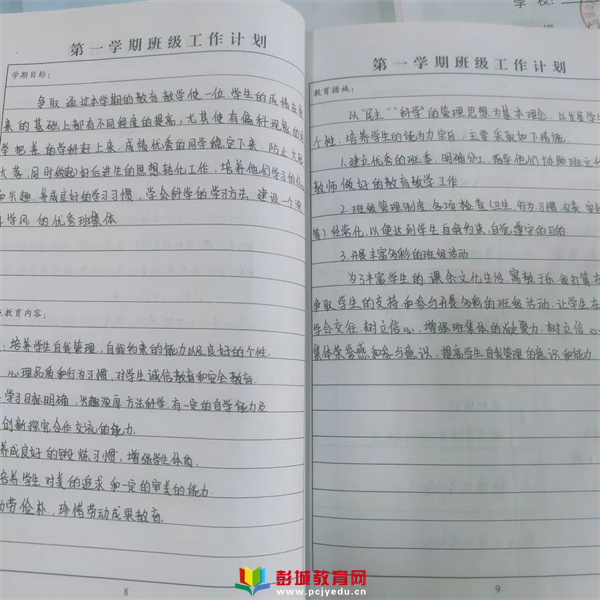 第一学期班级工作计划
学期目标:
争取通过本学期的教育教学使一位学生的成绩在原
来的基础上都有不同程度的提高,尤其使有偏科现象的
学把差的学科赶上来。成绩优秀的同学稳定下来,防止大起
大落,同时做好后进生的思想转化工作,培养他们学习的
和兴趣,养成良好的学习习惯,学会科学的学习方法,建设一个
学风的优秀班集体
教育内容:
培养学生自我管理,自我约束的能力以及良好的个性。
心理品质和行为习惯,对学生诚信教育和安全教育。
学习目标明确,兴趣浓厚方法科学,有一定的自学能力及
创新探究合作交流的能力。
养成良好的锻炼习惯,增强学生体质。
培养学生对美的追求和一定的审美的能力
劳俭朴,珍惜劳动成果教育。
8
学校:
第一学期班级工作计划
教育措施:
以"民主""科学"的管理思想为基本理念,以发展学
个性,培养学生的能力为宗旨,主要采取如下措施。
1.建立优秀的班委,明确分工,指导他们协助班主任
教师做好的教育教学工作。
2.班级管理制度,各项检查(卫生,行为习惯,
等)经常化,以便达到学生自我约束,自觉遵守的目的。
3.开展丰富多彩的班级活动
为了丰富学生的课余文化生活,寓教于乐,我打算在
争取学生的支持和参与开展多彩的班级活动,让学生在
学会交往,树立信心,增强班集体的凝聚力,树立信心
集体荣誉感和参与意识,提高学生自我管理的意识和能力。
9
彭城教育网
www.pcjyedu.cn